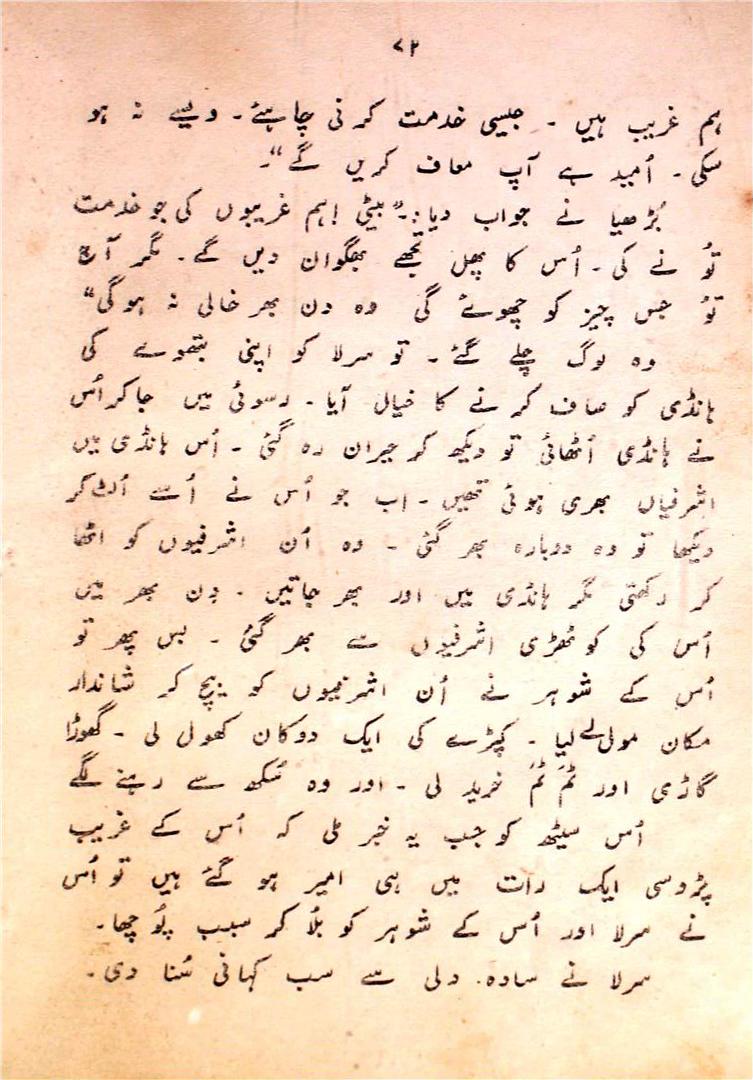 ۷۲
ہم غریب ہیں ۔ جیسی خدمت کرنی چاہئے ۔ ویسے نہ ہو
سکی ۔ اُمید ہے آپ معاف کریں گے“۔
بُڑھیا نے جواب دیا:۔”بیٹی! ہم غریبوں کی جو خدمت
تُو نے کی ۔ اُس کا پھل تجھے بھگوان دیں گے ۔ مگر آج
تُو جس چیز کو چھوئے گی وہ دن بھر خالی نہ ہوگی“
وہ لوگ چلے گئے ۔ تو سرلا کو اپنی بتھوے کی
ہانڈی کو صاف کرنے کا خیال آیا ۔ رسوئی میں جاکر اُس
نے ہانڈی اُٹھائی تو دیکھ کر حیران رہ گئی ۔ اُس ہانڈی میں
اشرفیاں بھری ہوئی تھیں ۔ اب جو اُس نے اُسے اُلٹ کر
دیکھا تو وہ دوبارہ بھر گئی ۔ وہ اُن اشرفیوں کو اٹھا
کر رکھتی مگر ہانڈی میں اور بھر جاتیں ۔ دِن بھر میں
اُس کی کوٹھڑی اشرفیوں سے بھر گئی ۔ بس پھر تو
اُس کے شوہر نے اُن اشرفیوں کو بیچ کر شاندار
مکان مول لے لیا ۔ کپڑے کی ایک دوکان کھول لی ۔ گھوڑا
گاڑی اور ٹم ٹم خرید لی ۔ اور وہ سُکھ سے رہنے لگے
اُس سیٹھ کو جب یہ خبر ملی کہ اُس کے غریب
پڑوسی ایک رات میں ہی امیر ہو گئے ہیں تو اُس
نے سرلا اور اُس کے شوہر کو بلُا کر سبب پُوچھا ۔
سرلا نے سادہ۔ دلی سے سب کہانی سُنا دی ۔